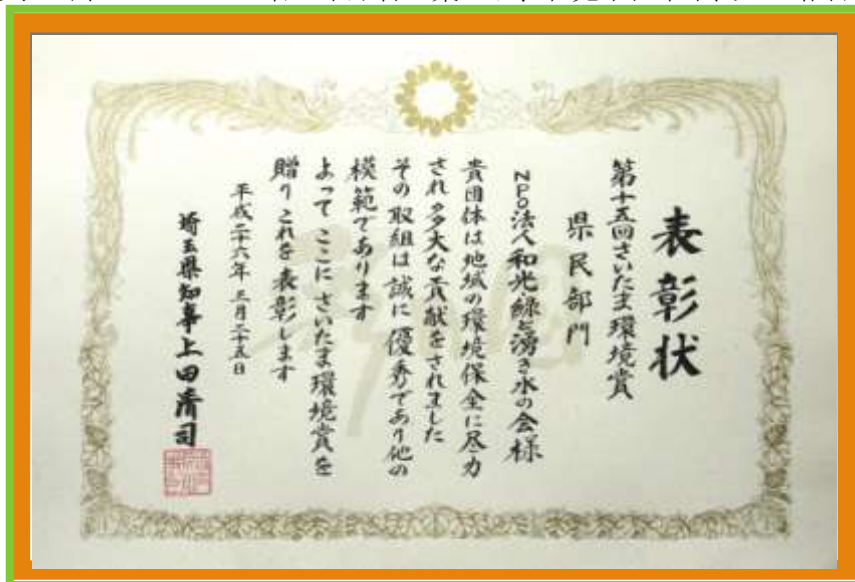 表彰状
第十五回さいたま環境賞
県民部門
NPO法人和光緑と湧き水の会様
貴団体は地域の環境保全に尽力
され多大な貢献をされました
その取組は誠に優秀であり他の
模範であります
よってここにさいたま環境賞を
贈りこれを表彰します
平成二十六年三月二十五日
埼玉県知事上田清司